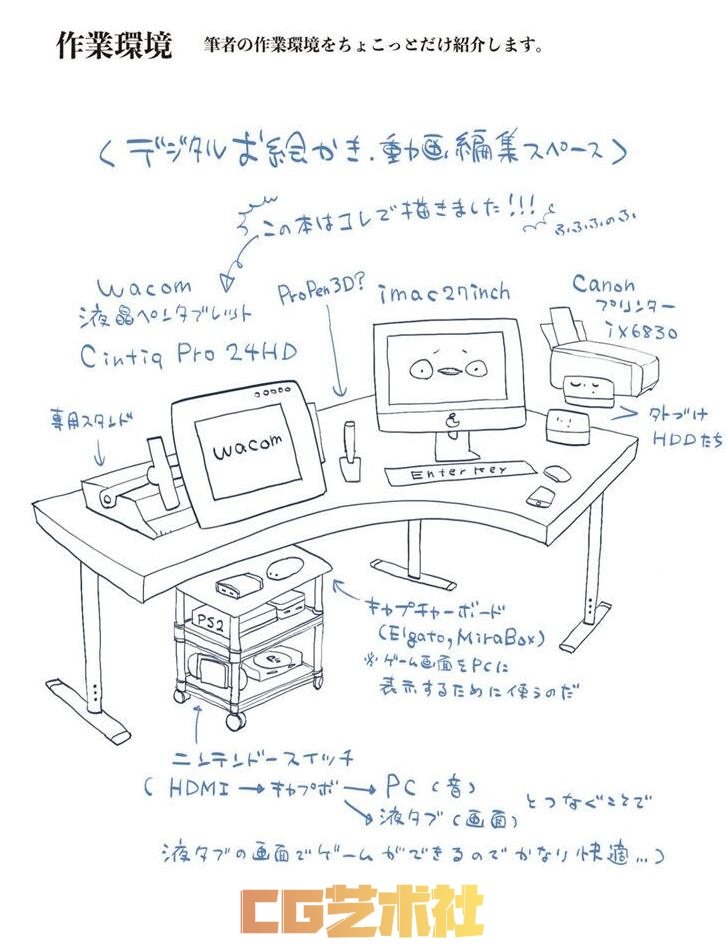 作業環境　筆者の作業環境をちょこっとだけ紹介します。
(デジタルお絵かき、動画編集スペース)
この本はコレで描きました!!!
ふ,ふ,ふのふ
wacom
液晶ペンタブレット
Cintiq Pro 24HD
ProPen3D?
imac27inch
Canon
プリンター
iX6830
専用スタンド
wacom
外づけ
HDDたち
Enter Key
キャプチャーボード
(Elgato,MiraBox)
※ゲーム画面をPCに
表示するために使うのだ
PS2
ニンテンドースイッチ
( HDMI → キャプボ → PC (音)
→ 液タブ (画面)
とつなぐことで
液タブの画面でゲームができるのでかなり快適...)
CG艺术社